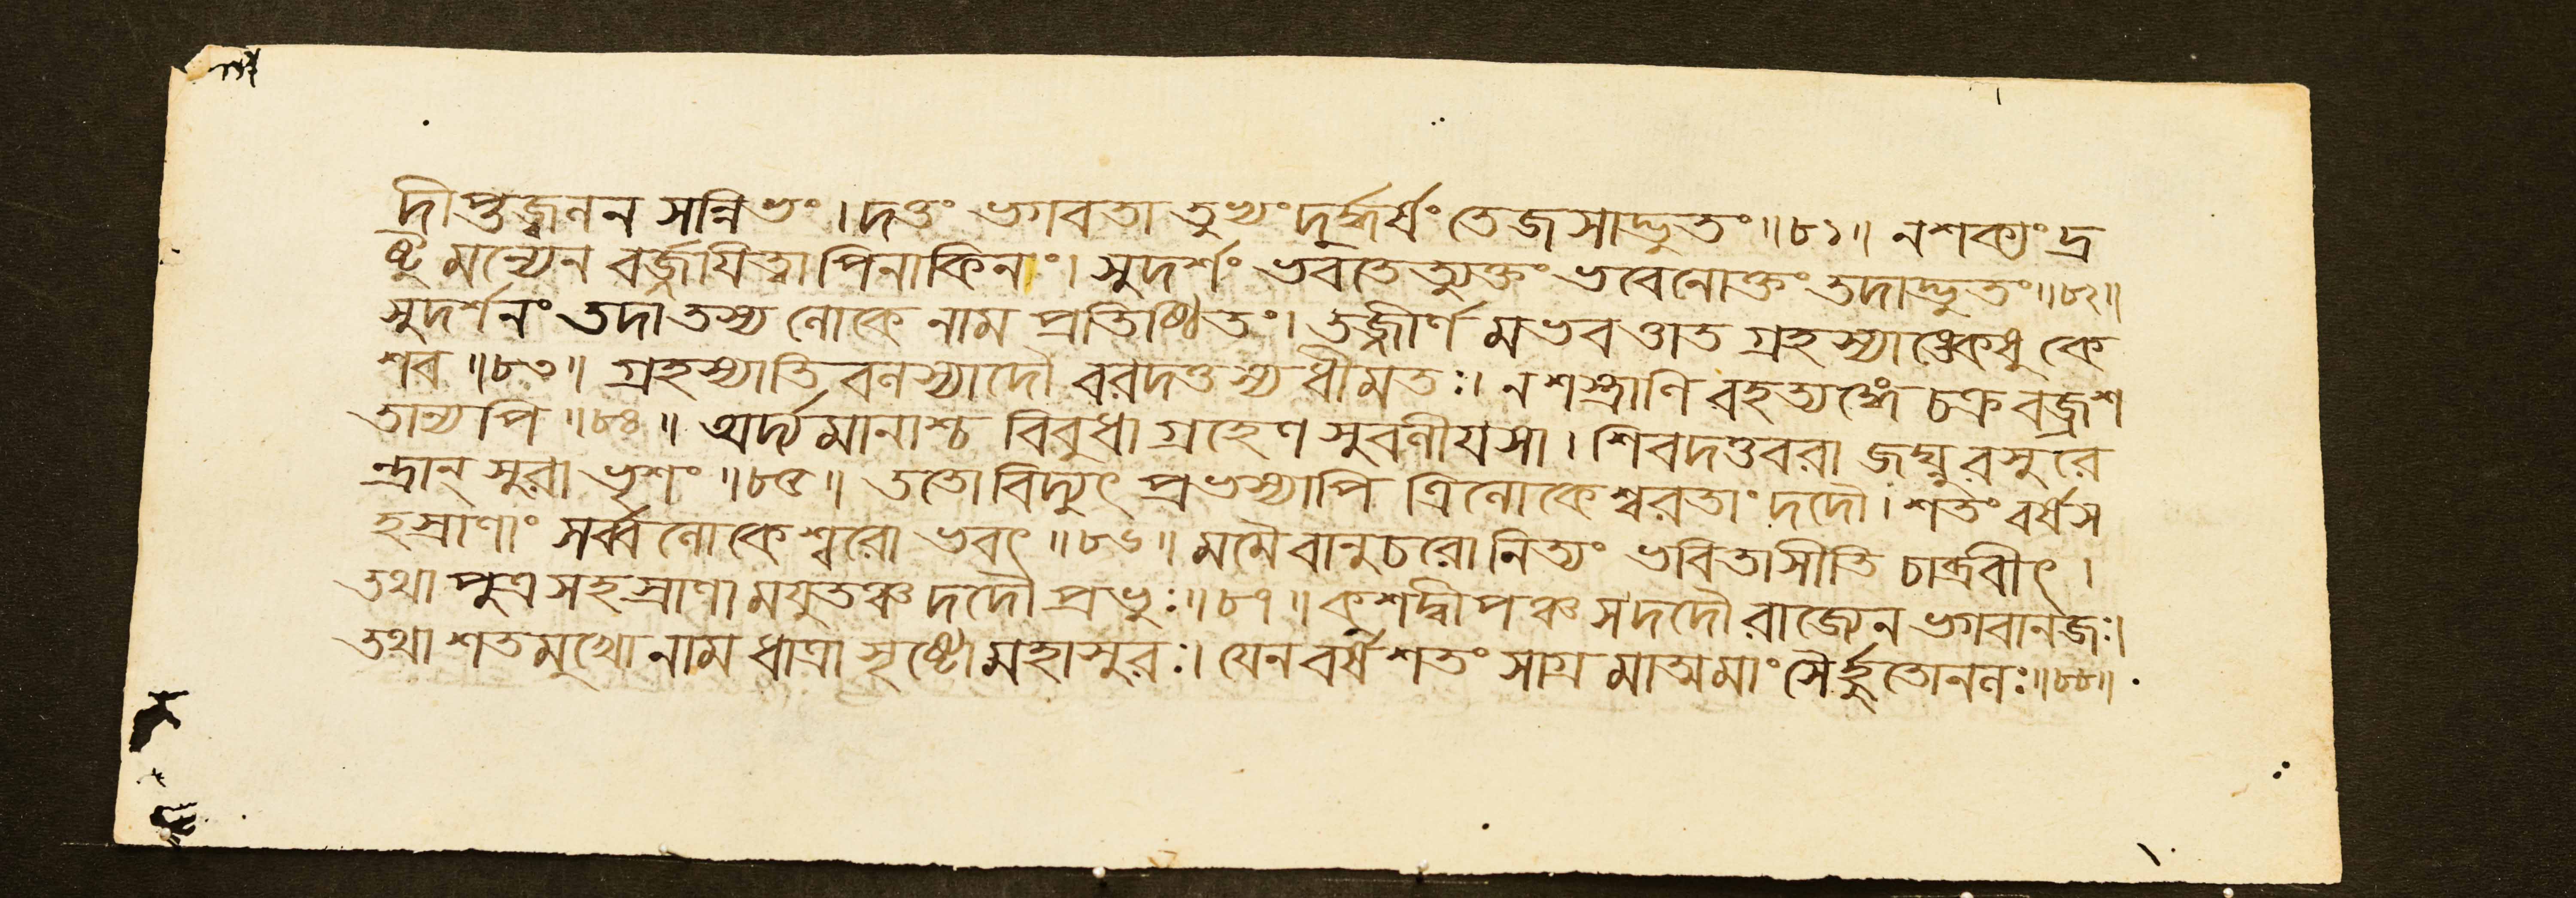 দীপ্তজ্বলন সন্নিভং । দত্তং ভগবতা তুভ্যং দুর্দ্ধর্ষং তেজসাদ্ভুতং ॥৮১॥ ন শক্যং দ্র
ষ্টুমন্যেন বর্জ্জয়িত্বা পিনাকিনাং । সুদর্শং ভবতেত্যুক্তং ভবেনোক্তং তদাদ্ভুতং ॥৮২॥
সুদর্শনং তদা তস্য লোকে নাম প্রতিষ্ঠিতং । তজ্জীর্ণমভবত্তাত গ্রহস্যাঙ্গেষু কে
শব ॥৮৩॥ গ্রহস্যাতি বলস্যাদৌ বরদত্তস্য ধীমতঃ । ন শস্ত্রাণি বহত্যঙ্গে চক্র বজ্রশ
তান্যপি ॥৮৪॥ অর্দ্দ্যমানাশ্চ বিবুধা গ্রহেণ সুবলীয়সা । শিবদত্তবরা জঘ্নুরসুরে
ন্দ্রান্ সুরা ভৃশং ॥৮৫॥ ততো বিদ্যুৎ প্রভস্যাপি ত্রিলোকেশ্বরতাং দদৌ । শতং বর্ষস
হস্রাণাং সর্ব্বলোকেশ্বরো ভবৎ ॥৮৬॥ মমৈবানুচরো নিত্যং ভবিতাসীতি চাব্রবীৎ ।
তথা পুত্র সহস্রাণামযুতঞ্চ দদৌ প্রভুঃ ॥৮৭॥ কুশদ্বীপঞ্চ স দদৌ রাজ্যেন ভগবানজঃ ।
তথা শতমুখো নাম ধাত্রা সৃষ্টো মহাসুরঃ । যেন বর্ষ শতং সাগ্রমাত্মমাংসৈর্হুতোনলঃ ॥৮৮॥